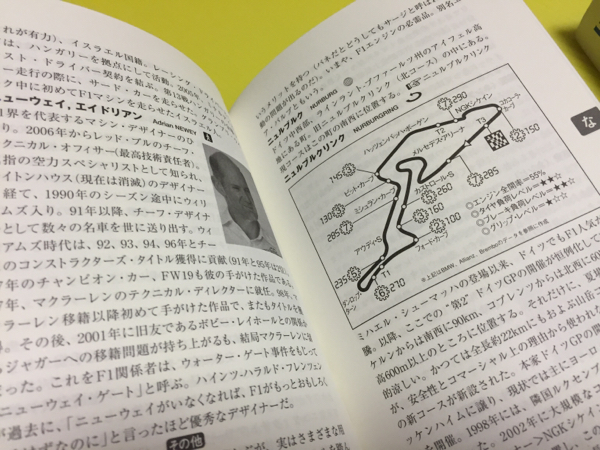 れが有力)、イスラエル国籍。レーシング・
は、ハンガリーを拠点にして活動。2005年
スト・ドライバー契約を結ぶ。第13戦ハンガリー
ー走行の際に、サード・カーを走らせ、イスラ
ク中に初めてF1マシンを走らせたイスラエル
ニューウェイ,エイドリアン
Adrian NEWEY
世界を代表するマシン・デザイナーのひ
り。2006年からレッド・ブルのチーフ・
クニカル・オフィサー(最高技術責任者)。
指の空力スペシャリストとして知られ、
イトンハウス(現在は消滅)のデザイナー
経て、1990年のシーズン途中でウィリ
ムズ入り。91年以降、チーフ・デザイナ
として数々の名車を世に送り出す。ウィ
アムズ時代は、92、93、94、96年とチー
のコンストラクターズ・タイトル獲得に貢献(91年と95年は
年のチャンピオン・カー、FW19も彼の手がけた作品である。
年、マクラーレンのテクニカル・ディレクターに就任。98年、
ラーレン移籍以降初めて手がけた作品で、またもタイトルを獲
。その後、2001年に旧友であるボビー・レイホールとの関係か
ジャガーへの移籍問題が持ち上がるも、結局マクラーレンに
った。これをF1関係者は、ウォーター・ゲート事件をもじって
ニューウェイ・ゲート」と呼ぶ。ハインツ・ハラルド・フレンツェン
が過去に、「ニューウェイがいなくなれば、F1がもっとおもしろく
はずなのに」と言ったほど優秀なデザイナーだ。
その他
が、実はさまざまな用
いうメリットを持つ。(バネだとどうしてもサージと呼ばれ
動の問題が出るのだ)。いまや、F1エンジンの必需品。別名
ア・バルブともいう。
ニュルブルク
NURBURG
ドイツ中西部、ラインラント・プファールツ州のアイフェル高
地にある町。旧ニュルブルクリンク(北コース)の中にある。
現コースはこの町の南西に位置する。
ニュルブルクリンク
ニュルブルクリンク
NURBURGRING
な
⑦290
NGKシケイン
スカコーナ・
カーブ
ハッツェンバッハ・ボーゲン
T2
T3
メルセデス・アリーナ
②150
145③
ビット・カーブ
130③
ミシュラン・カーブ
285⑦
カストロール・S
⑤260
③160
⑥285
②150
フォード・カーブ
アウディ・S
235⑤
285⑥
T1
⑥270
ダンロップ・
ターン
○エンジン全開率=55%
○タイヤ負荷レベル=★★☆
○ブレーキ負荷レベル=★★☆
○グリップ・レベル=★★☆
※上記はBMW、Allianz、Bremboのデータを参考に作成。
ミハエル・シューマッハの登場以来、ドイツでもF1人気が
騰。以降、ここでの“第2”ドイツGPの開催が恒例化して
ケルンからは南西に90km、コブレンツからは北西に60k
高600m以上のところに位置する。それだけに、夏場
的涼しい。かつては全長約22kmにもおよぶ山岳コ
が、安全性とコマーシャル上の理由から使われな
の新コースが新設された。本家ドイツGPの開
ッケンハイムに譲り、現状では主にヨーロッ
を開催。1998年には、隣国ルクセンブ
た。2002年に大規模なコ
ナー>NGKシケイ